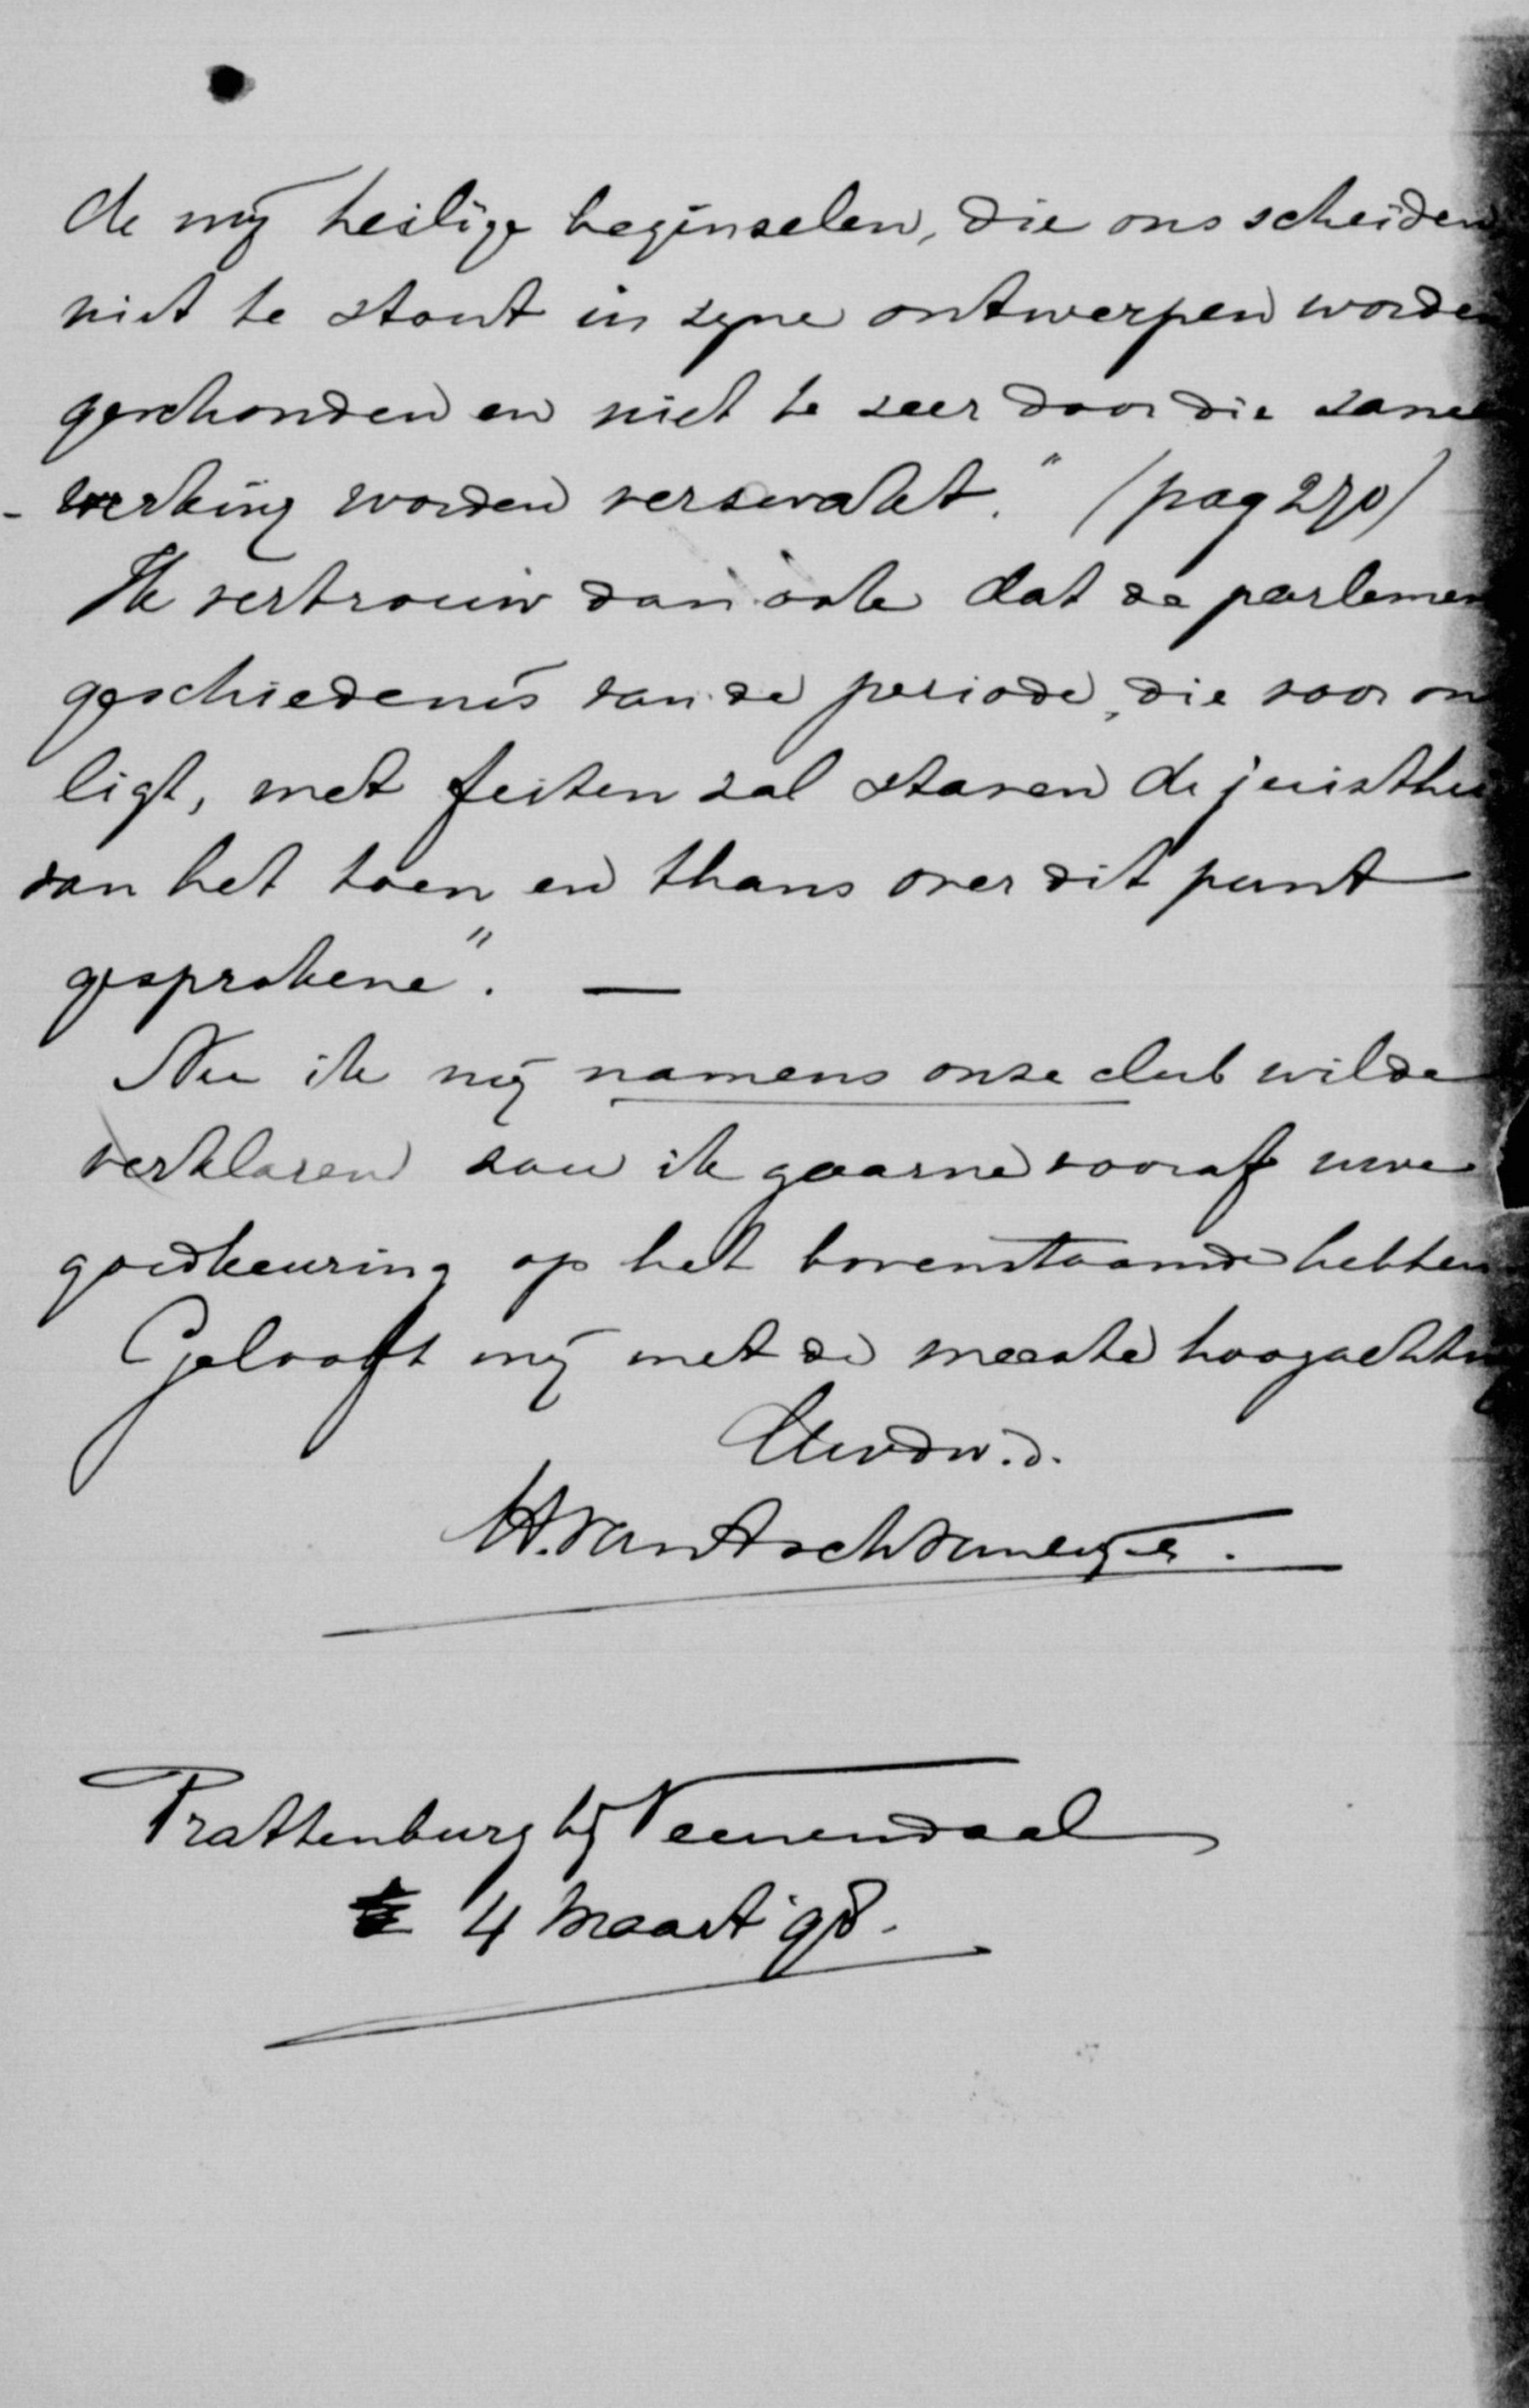 de mij heilige beginselen, die ons scheiden
niet te stout in zijne ontwerpen worden
geschonden en niet te zeer door die same
- werking worden verzwakt." (pag 270)
Ik vertrouw dan ook dat de parlemen
geschiedenis van de periode, die voor on
ligt, met feiten zal staven de juisthei
van het toen en thans over dit punt
gesprokene". —
Nu ik mij namens onze club wilde
verklaren zou ik gaarne vooraf uwe
goedkeuring op het bovenstaande hebben
Gelooft mij met de meeste hoogachting
Uwdw.d.
H. van Asch van Wijck.
Prattenburg bij Veenendaal
4 Maart '98.